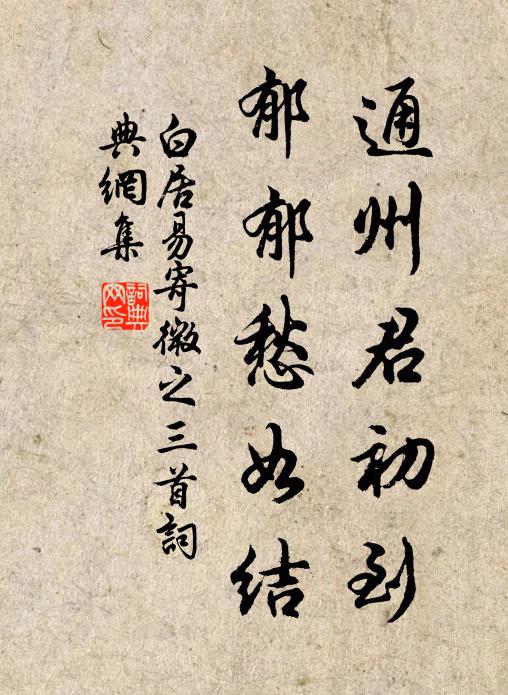 通州君初到
郁郁愁如结
白居易寄微之三首詞
典網集
詞典网印